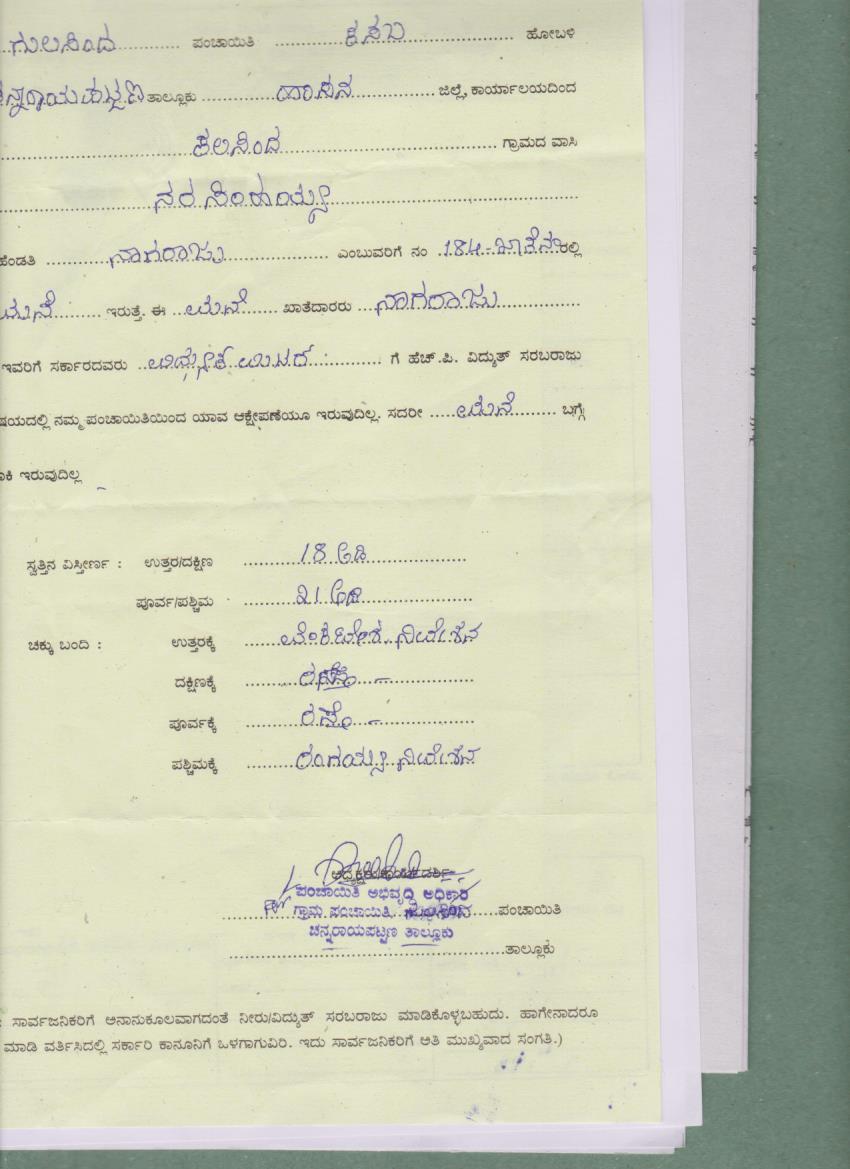 ಗುಲಸಿಂದ ಪಂಚಾಯಿತಿ ಕಸಬ ಹೋಬಳಿ
ನ್ನರಾಯಪಟ್ಟಣ ತಾಲ್ಲೂಕು ಹಾಸನ ಜಿಲ್ಲೆ, ಕಾರ್ಯಾಲಯದಿಂದ
ಕಲಸಿಂದ ಗ್ರಾಮದ ವಾಸಿ
ನರಸಿಂಹಯ್ಯ
ಹೆಂಡತಿ ನಾಗರಾಜು ಎಂಬುವರಿಗೆ ನಂ 184 ರಲ್ಲಿ
ಮನೆ ಇರುತ್ತೆ. ಈ ಮನೆ ಖಾತೆದಾರರು ನಾಗರಾಜು
ಇವರಿಗೆ ಸರ್ಕಾರದವರು ವಿದ್ಯುತ ಗೆ ಹೆಚ್.ಪಿ. ವಿದ್ಯುತ್ ಸರಬರಾಜು
ಷಯದಲ್ಲಿ ನಮ್ಮ ಪಂಚಾಯಿತಿಯಿಂದ ಯಾವ ಆಕ್ಷೇಪಣೆಯೂ ಇರುವುದಿಲ್ಲ. ಸದರೀ ಮನೆ ಬಗ್ಗೆ
ಾಕಿ ಇರುವುದಿಲ್ಲ
ಸ್ವತ್ತಿನ ವಿಸ್ತೀರ್ಣ : ಉತ್ತರ/ದಕ್ಷಿಣ 18 ಅಡಿ
ಪೂರ್ವ/ಪಶ್ಚಿಮ 21 ಅಡಿ
ಚಕ್ಕು ಬಂದಿ : ಉತ್ತರಕ್ಕೆ ವೆಂಕಟೇಶ ನಿವೇಶನ
ದಕ್ಷಿಣಕ್ಕೆ ರಸ್ತೆ
ಪೂರ್ವಕ್ಕೆ ರಸ್ತೆ
ಪಶ್ಚಿಮಕ್ಕೆ ರಂಗಯ್ಯ ನಿವೇಶನ
ಪಂಚಾಯಿತಿ ಅಭಿವೃದ್ಧಿ ಅಧಿಕಾರಿ
ಗ್ರಾಮ ಪಂಚಾಯಿತಿ, ಪಂಚಾಯಿತಿ
ಚನ್ನರಾಯಪಟ್ಟಣ ತಾಲ್ಲೂಕು
ತಾಲ್ಲೂಕು
: ಸಾರ್ವಜನಿಕರಿಗೆ ಅನಾನುಕೂಲವಾಗದಂತೆ ನೀರು/ವಿದ್ಯುತ್ ಸರಬರಾಜು ಮಾಡಿಕೊಳ್ಳಬಹುದು. ಹಾಗೇನಾದರೂ
ಮಾಡಿ ವರ್ತಿಸಿದಲ್ಲಿ ಸರ್ಕಾರಿ ಕಾನೂನಿಗೆ ಒಳಗಾಗುವಿರಿ. ಇದು ಸಾರ್ವಜನಿಕರಿಗೆ ಅತಿ ಮುಖ್ಯವಾದ ಸಂಗತಿ.)